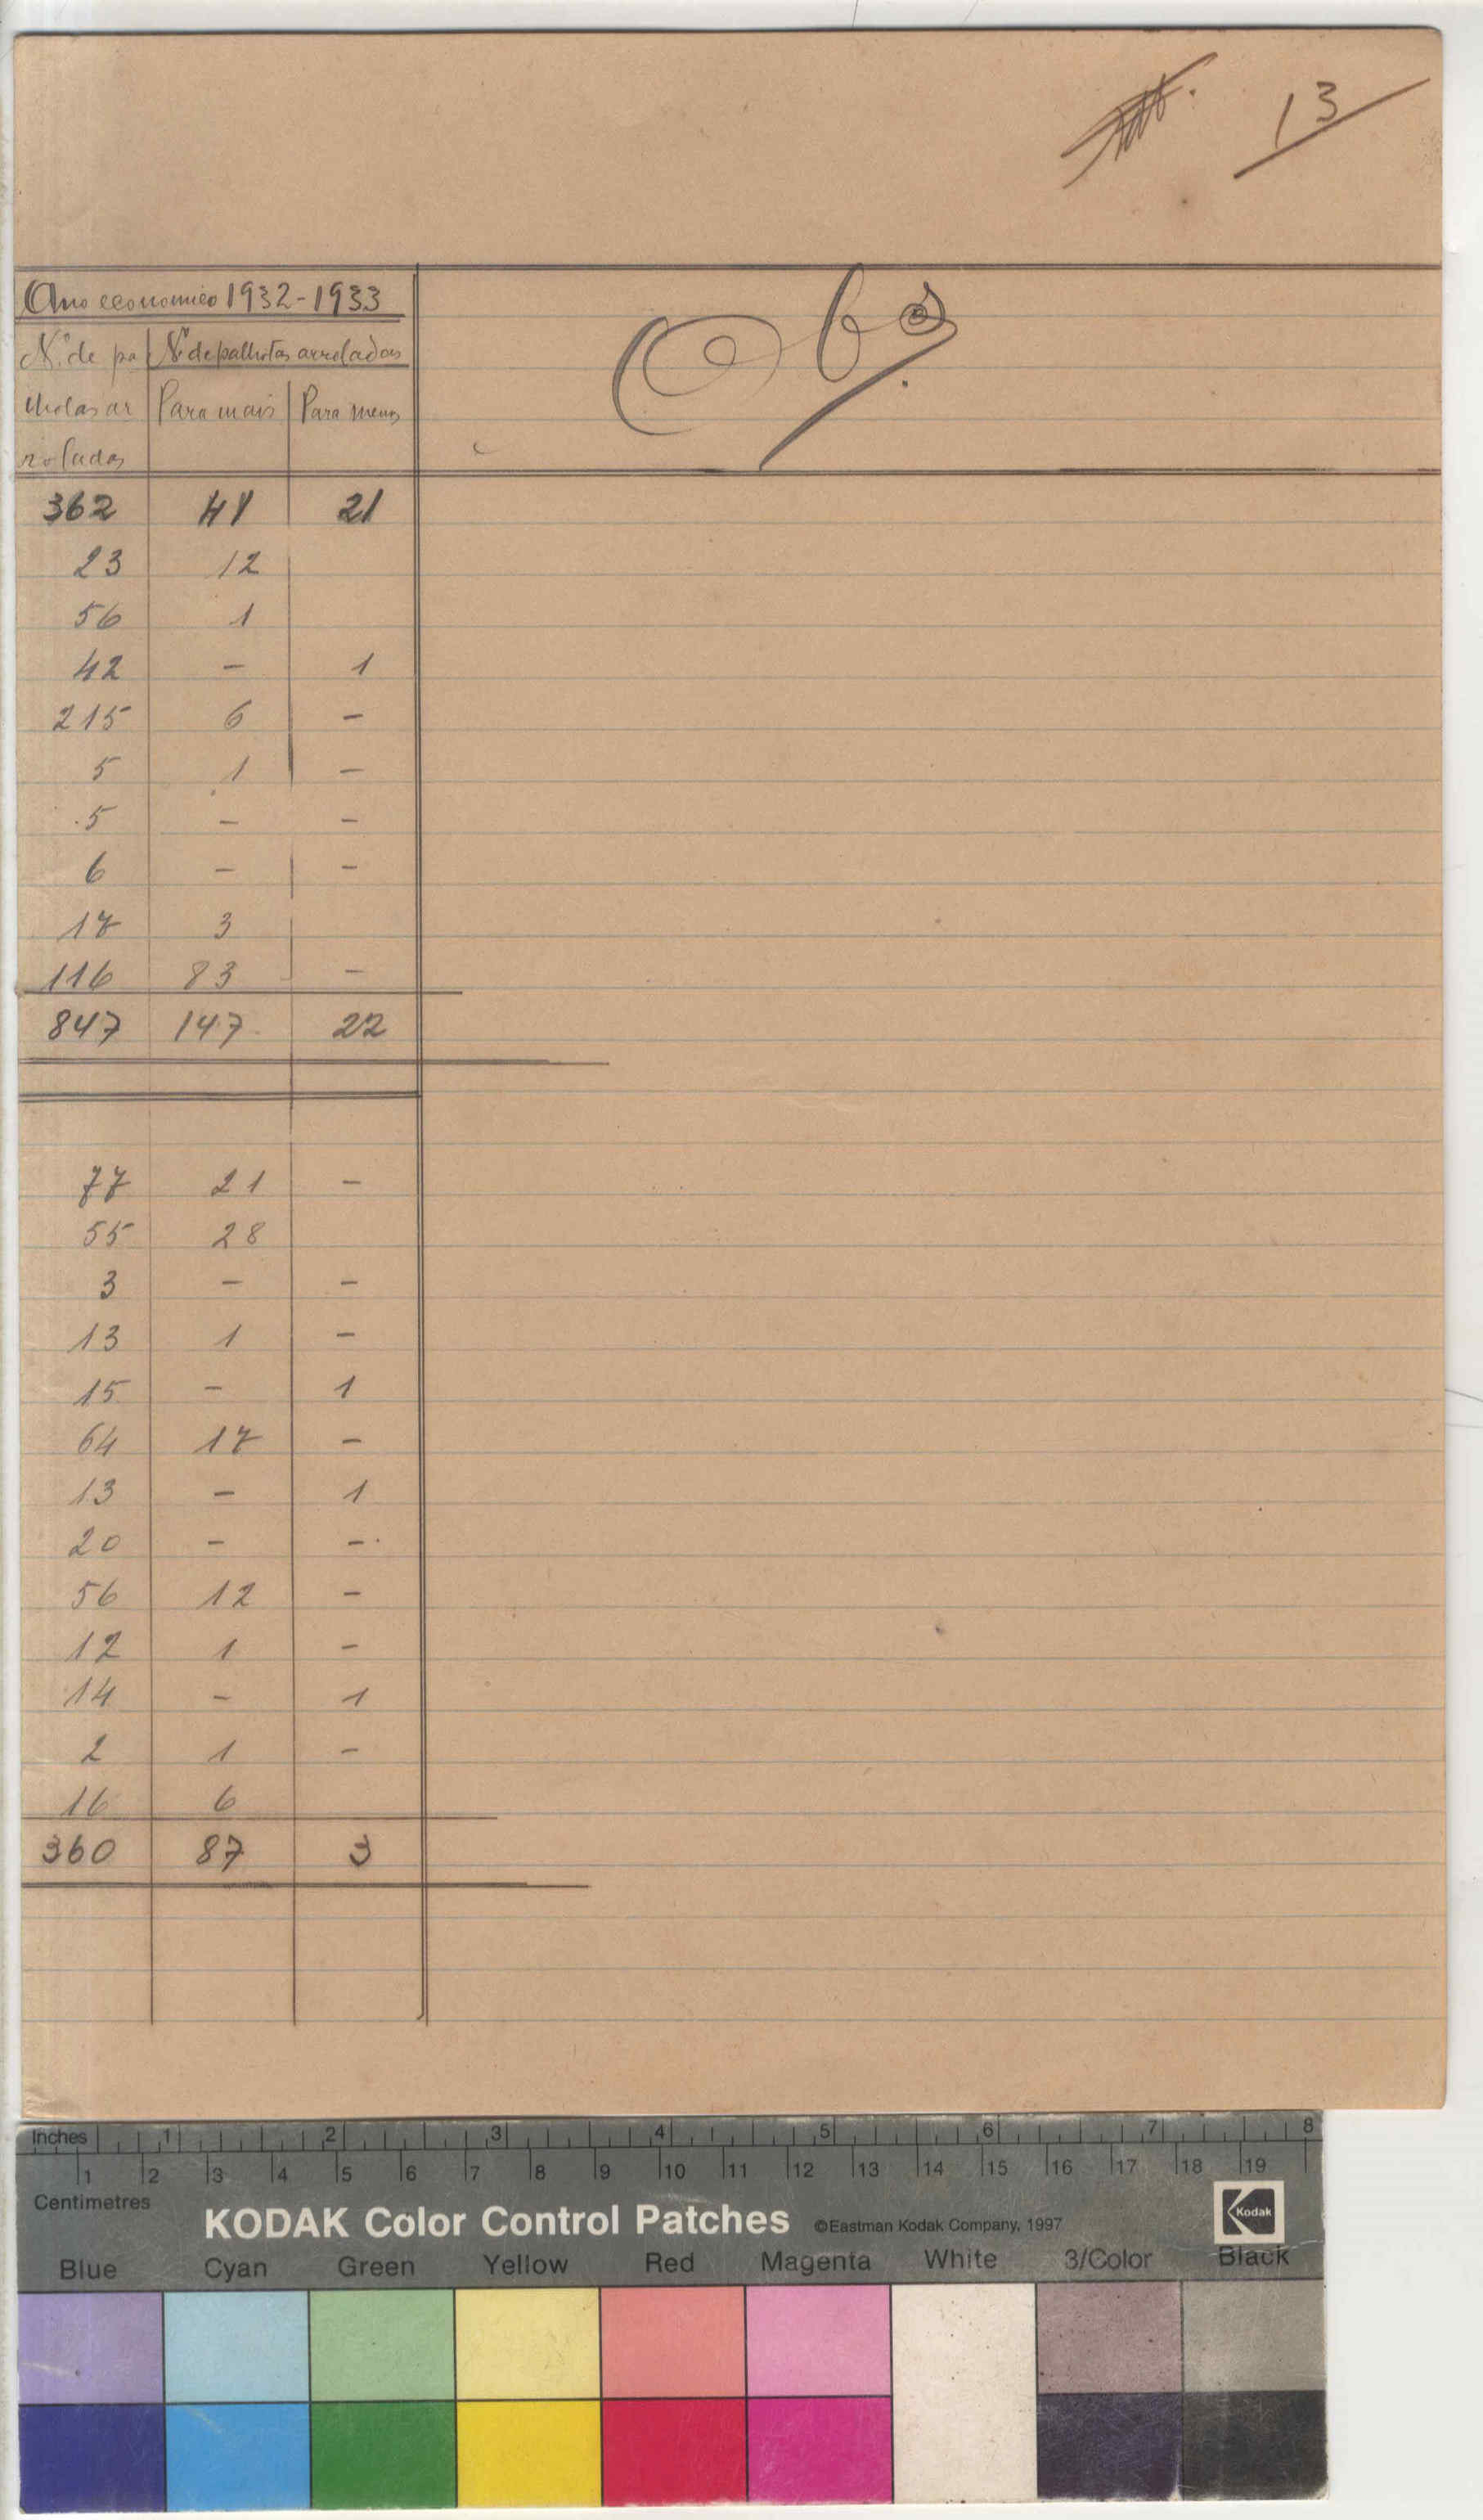 13
Ano economico 1932-1933
Obs.
N.º de pa N.º de palhotas arroladas
lhotas ar Para mais Para menos
roladas
362 41 21
23 12
56 1
42 - 1
215 6 -
5 1 -
5 - -
6 - -
17 3
116 83 -
847 147 22
77 21 -
55 28
3 - -
13 1 -
15 - 1
64 17 -
13 - 1
20 - -
56 12 -
12 1 -
14 - 1
2 1 -
16 6
360 87 3
Inches 1 2 3 4 5 6 7 8
1 2 3 4 5 6 7 8 9 10 11 12 13 14 15 16 17 18 19
Centimetres
KODAK Color Control Patches ©Eastman Kodak Company, 1997 Kodak
Blue Cyan Green Yellow Red Magenta White 3/Color Black